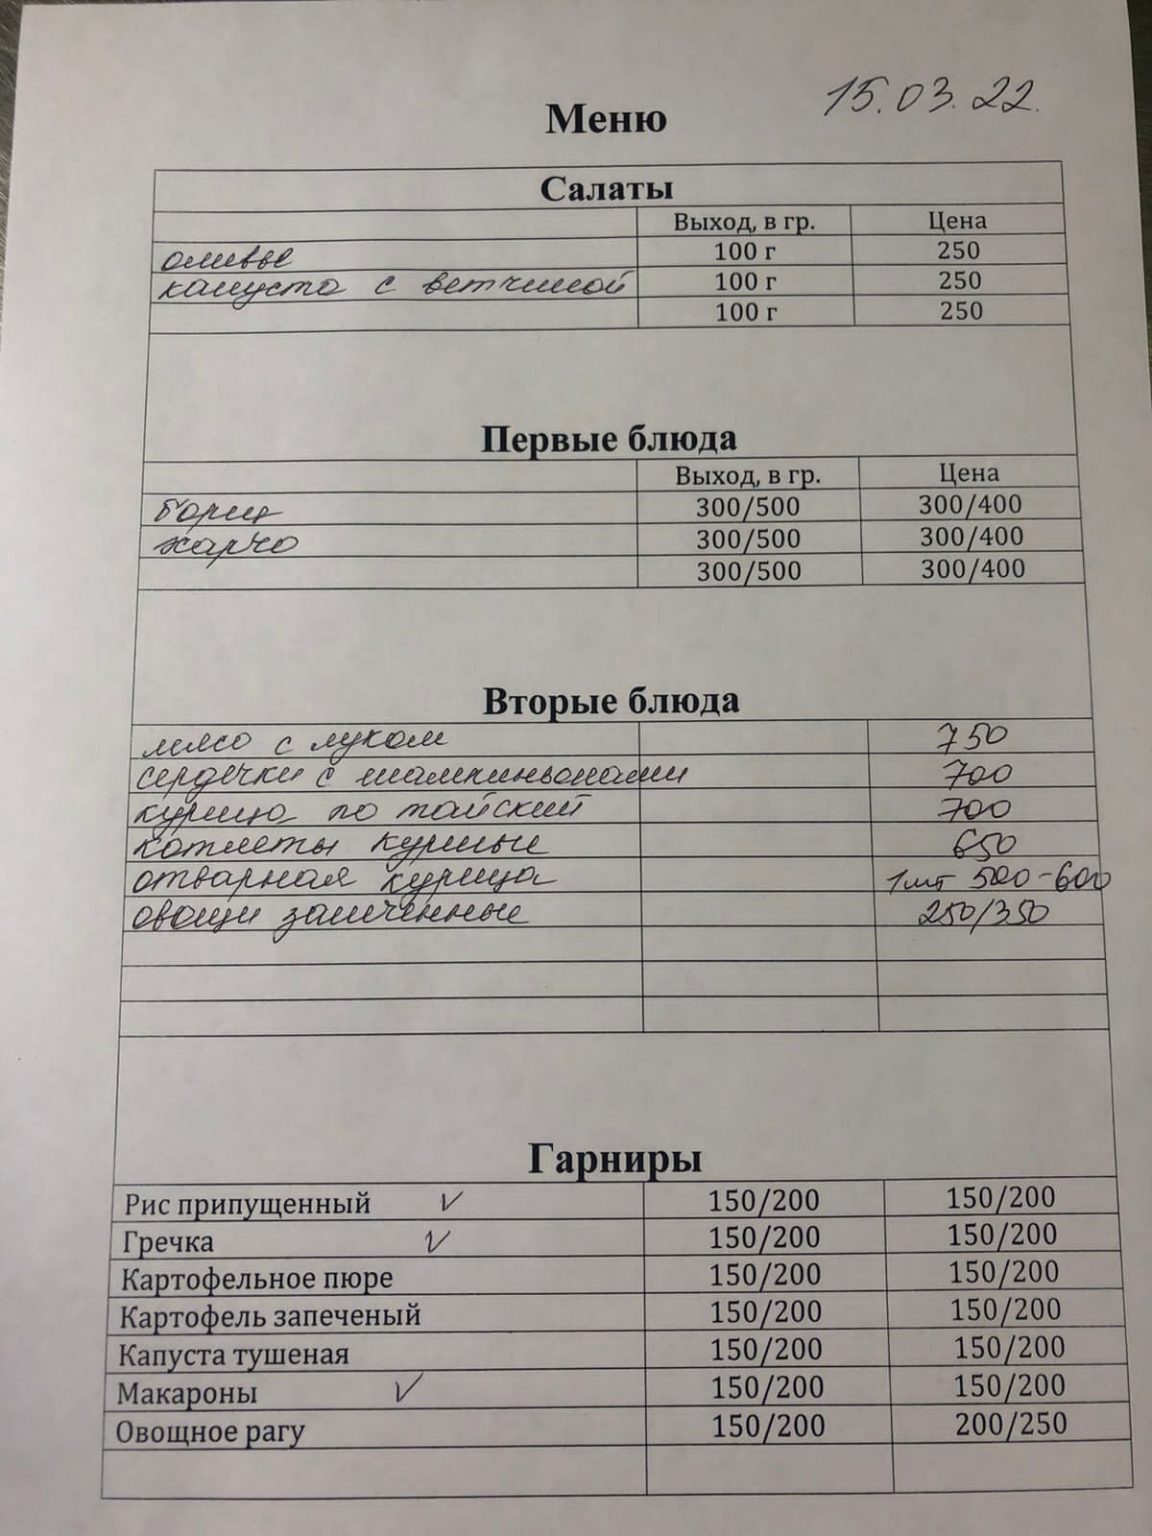 15.03.22.
Меню
Салаты
Выход, в гр. Цена
оливье 100 г 250
капуста с ветчиной 100 г 250
100 г 250
Первые блюда
Выход, в гр. Цена
борщ 300/500 300/400
харчо 300/500 300/400
300/500 300/400
Вторые блюда
мясо с луком 750
сердечки с шампиньонами 700
курица по тайский 700
котлеты куриные 650
отварная курица 1шт 500-600
овощи запечённые 250/350
Гарниры
Рис припущенный ✓ 150/200 150/200
Гречка ✓ 150/200 150/200
Картофельное пюре 150/200 150/200
Картофель запеченый 150/200 150/200
Капуста тушеная 150/200 150/200
Макароны ✓ 150/200 150/200
Овощное рагу 150/200 200/250